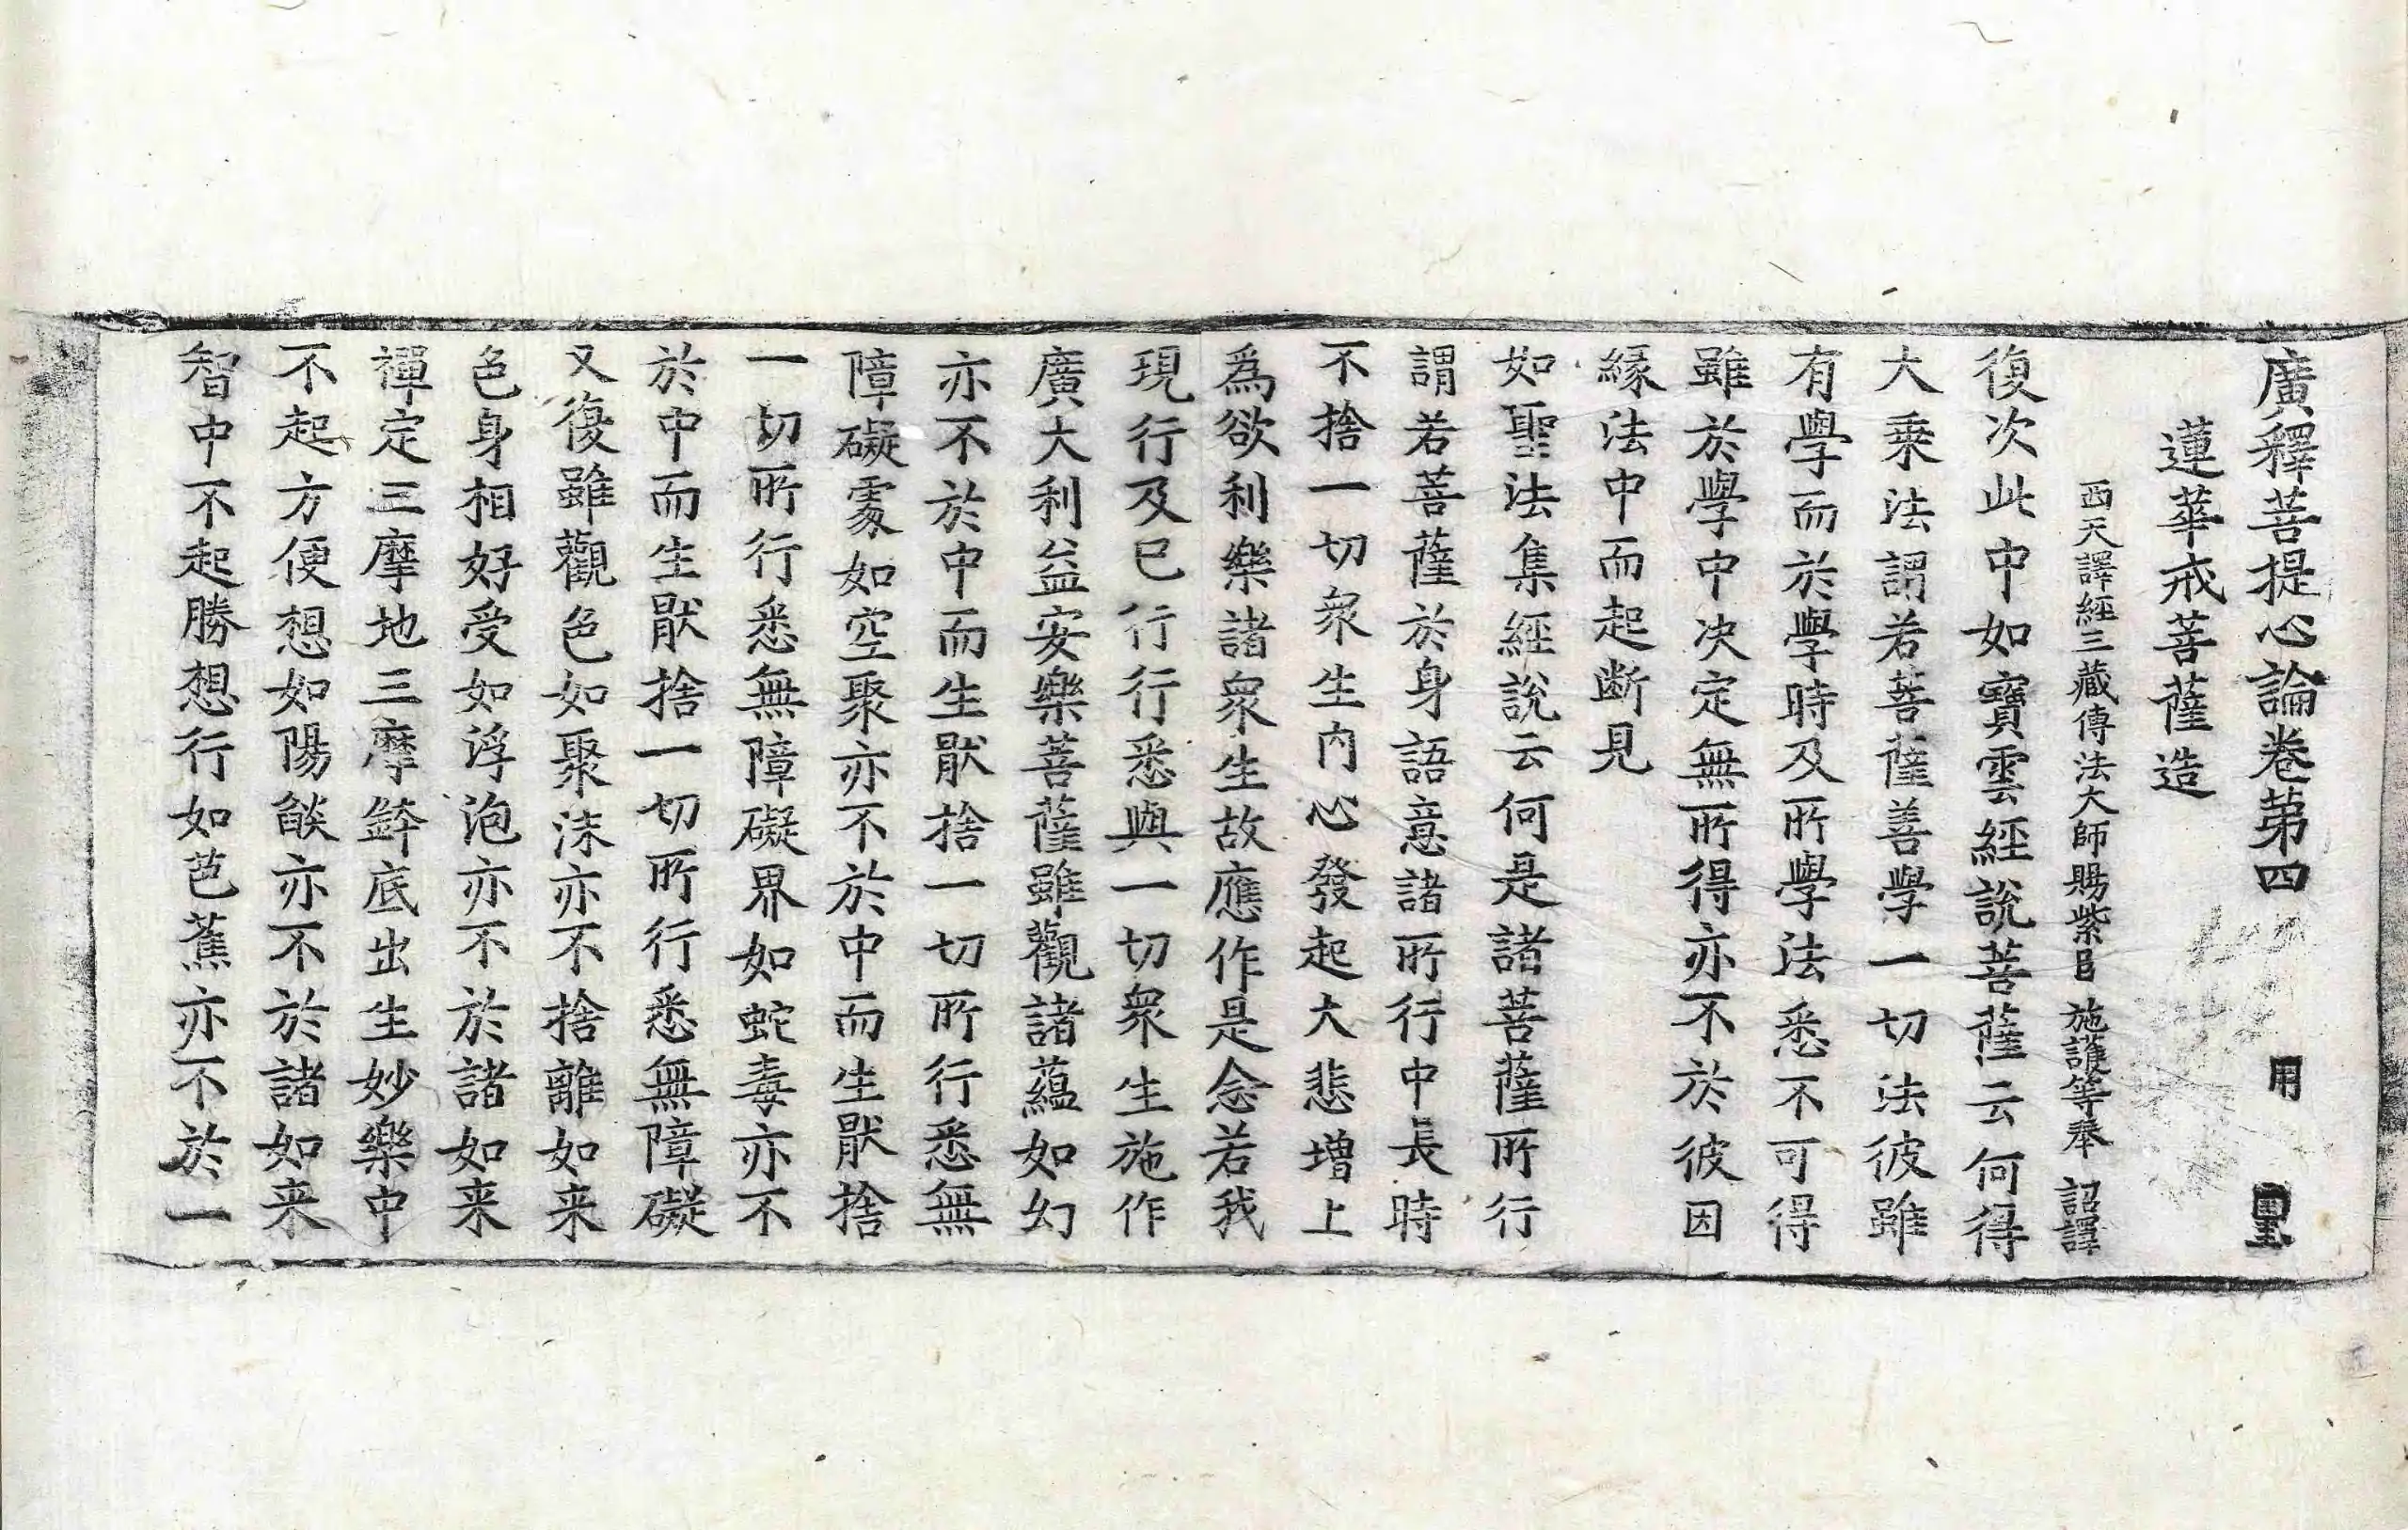 廣釋菩提心論卷苐四 用
蓮華戒菩薩造
西天譯經三藏傳法大師賜紫臣 施護等奉 詔譯
復次此中如寶雲經說菩薩云何得
大乘法謂若菩薩善學一切法彼雖
有學而於學時及所學法悉不可得
雖於學中决定無所得亦不於彼因
緣法中而起斷見
如聖法集經說云何是諸菩薩所行
謂若菩薩於身語意諸所行中長時
不捨一切衆生內心發起大悲增上
爲欲利樂諸衆生故應作是念若我
現行及已行行悉與一切衆生施作
廣大利益安樂菩薩雖觀諸蘊如幻
亦不於中而生猒捨一切所行悉無
障礙處如空聚亦不於中而生猒捨
一切所行悉無障礙界如蛇毒亦不
於中而生猒捨一切所行悉無障礙
又復雖觀色如聚沫亦不捨離如来
色身相好受如浮泡亦不於諸如来
禪定三摩地三摩鉢底出生妙樂中
不起方便想如陽燄亦不於諸如来
智中不起勝想行如芭蕉亦不於一